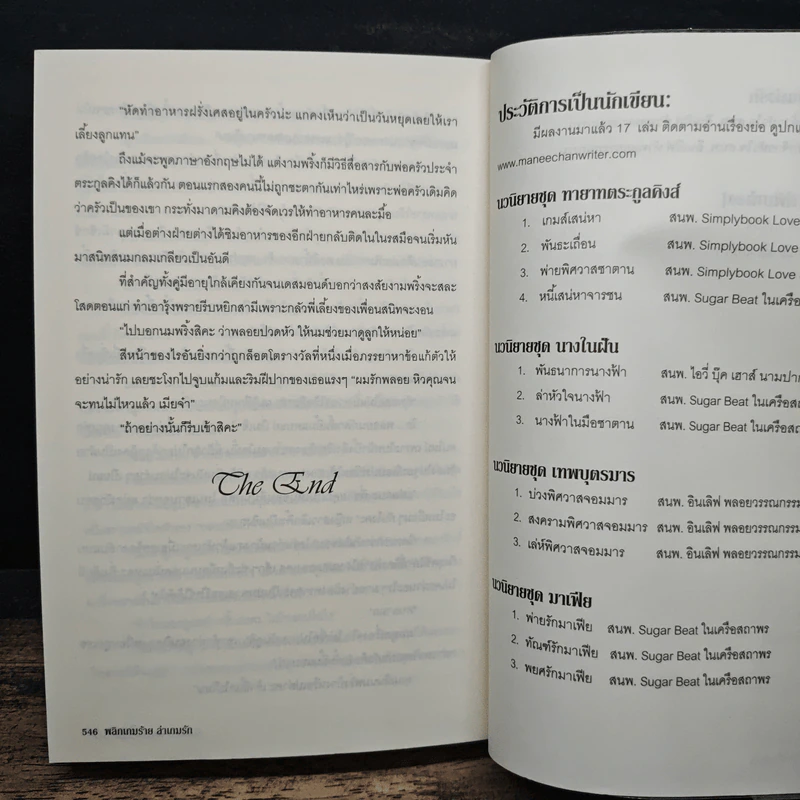 "หัดทำอาหารฝรั่งเศสอยู่ในครัวน่ะ แกคงเห็นว่าเป็นวันหยุดเลยให้เรา
เลี้ยงลูกแทน"
ถึงแม้จะพูดภาษาอังกฤษไม่ได้ แต่งามพริ้งก็มีวิธีสื่อสารกับพ่อครัวประจำ
ตระกูลคิงได้ก็แล้วกัน ตอนแรกสองคนนี้ไม่ถูกชะตากันเท่าไหร่เพราะพ่อครัวเดิมคิด
ว่าครัวเป็นของเขา กระทั่งมาดามคิงต้องจัดเวรให้ทำอาหารคนละมื้อ
แต่เมื่อต่างฝ่ายต่างได้ชิมอาหารของอีกฝ่ายกลับติดใจในรสมือจนเริ่มหัน
มาสนิทสนมกลมเกลียวเป็นอันดี
ที่สำคัญทั้งคู่มีอายุใกล้เคียงกันจนเดสมอนด์บอกว่าสงสัยงามพริ้งจะสละ
โสดตอนแก่ ทำเอารุ้งพรายรีบหยิกสามีเพราะกลัวพี่เลี้ยงของเพื่อนสนิทจะงอน
"ไปบอกนมพริ้งสิคะ ว่าพลอยปวดหัว ให้นมช่วยมาดูลูกให้หน่อย"
สีหน้าของไรอันยิ่งกว่าถูกล็อตโตรางวัลที่หนึ่งเมื่อภรรยาหาข้อแก้ตัวให้
อย่างน่ารัก เลยชะโงกไปจูบแก้มและริมฝีปากของเธอแรงๆ "ผมรักพลอย หิวคุณจน
จะทนไม่ไหวแล้ว เมียจ๋า"
"ถ้าอย่างนั้นก็รีบเข้าสิคะ"
The End
546 พลิกเกมร้าย ล่าเกมรัก
ประวัติการเป็นนักเขียน:
มีผลงานมาแล้ว 17 เล่ม ติดตามอ่านเรื่องย่อ ดูปก
www.maneechanwriter.com
นวนิยายชุด ทายาทตระกูลคิงส์
1. เกมส์เสน่หา สนพ. Simplybook Love
2. พันธะเถื่อน สนพ. Simplybook Love
3. พ่ายพิศวาสซาตาน สนพ. Simplybook Love
4. หนี้เสน่หาจารชน สนพ. Sugar Beat ในเครือ
นวนิยายชุด นางในฝัน
1. พันธนาการนางฟ้า สนพ. ไอวี่ บุ๊ค เฮาส์ นามปาก
2. ล่าหัวใจนางฟ้า สนพ. Sugar Beat ในเครือสถา
3. นางฟ้าในมือซาตาน สนพ. Sugar Beat ในเครือสถา
นวนิยายชุด เทพบุตรมาร
1. บ่วงพิศวาสจอมมาร สนพ. อินเลิฟ พลอยวรรณกรรม
2. สงครามพิศวาสจอมมาร สนพ. อินเลิฟ พลอยวรรณกรรม
3. เล่ห์พิศวาสจอมมาร สนพ. อินเลิฟ พลอยวรรณกรรม
นวนิยายชุด มาเฟีย
1. พ่ายรักมาเฟีย สนพ. Sugar Beat ในเครือสถาพร
2. ทัณฑ์รักมาเฟีย สนพ. Sugar Beat ในเครือสถาพร
3. พยศรักมาเฟีย สนพ. Sugar Beat ในเครือสถาพร